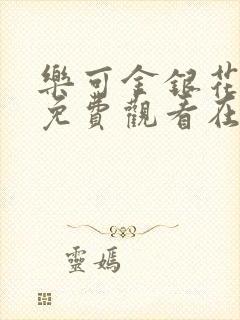 樂可金銀花
免費觀看在
靈媽